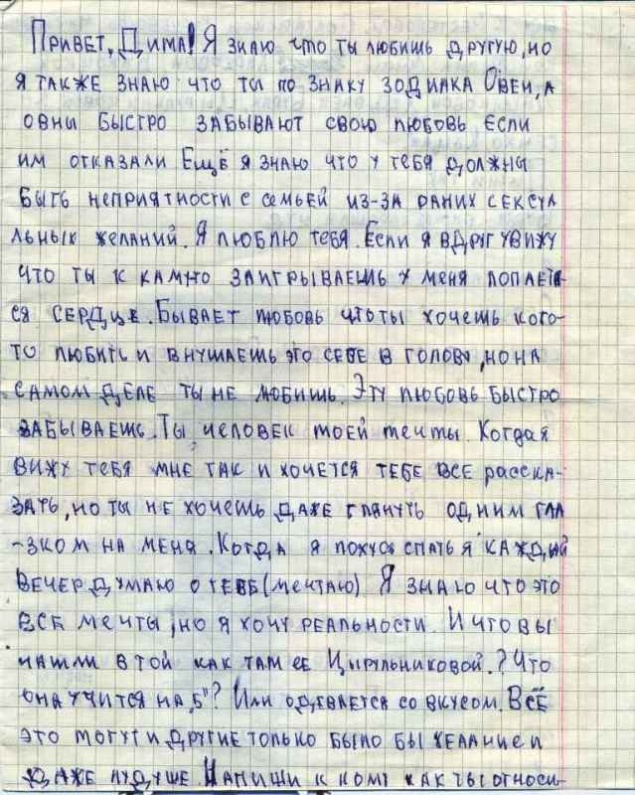 Привет, Дима! Я знаю что ты любишь другую, но
я также знаю что ты по знаку зодиака Овен, а
овны быстро забывают свою любовь если
им отказали Ещё я знаю что у тебя должны
быть неприятности с семьей из-за раних сексуа
льных желаний. Я люблю тебя. Если я вдруг увижу
что ты к камто заигрываешь у меня лопает-
ся сердце. Бывает любовь что ты хочешь кого-
то любить и внушаешь это себе в голову, но на
самом деле ты не любишь. Эту любовь быстро
забываешь. Ты человек моей мечты. Когда я
вижу тебя мне так и хочется тебе все расска-
зать, но ты не хочешь даже глянуть одним гла
-зком на меня. Когда я ложусь спать я каждый
вечер думаю о тебе (мечтаю) Я знаю что это
все мечты, но я хочу реальности. И что вы
нашли в той как там ее Цырульниковой.? Что
она учится на „5"? Или одевается со вкусом. Всё
это могут и другие только было бы желание и
даже лудьше. Напиши к кому как ты относи-